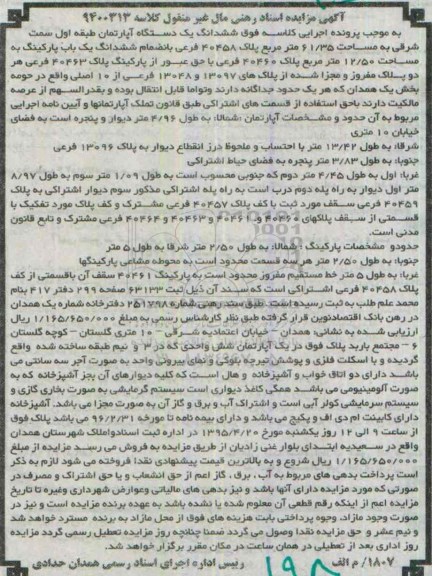 آگهی مزایده اسناد رهنی مال غیر منقول کلاسه ۹۴۰۰۳۱۳
به موجب پرونده اجرایی کلاسه فوق ششدانگ یک دستگاه آپارتمان طبقه اول سمت
شرقی به مساحت ۶۱/۳۵ متر مربع پلاک ۴۰۴۵۸ فرعی بانضمام ششدانگ یک باب پارکینگ به
مساحت ۱۲/۵۰ متر مربع پلاک ۴۰۴۶۰ فرعی با حق عبور از پارکینگ پلاک ۴۰۴۶۳ فرعی هر
دو پلاک مفروز و مجزا شده از پلاک های ۱۳۰۹۷ و ۱۳۰۴۸ فرعی از ۱۰ اصلی واقع در حومه
بخش یک همدان که هر یک حدود جداگانه دارند وتواما قابل انتقال بوده و بقدرالسهم از عرصه
مالکیت دارند باحق استفاده از قسمت های اشتراکی طبق قانون تملک آپارتمانها و آیین نامه اجرایی
مربوط به آن حدود و مشخصات آپارتمان :شمالا: به طول ۴/۹۶ متر دیوار و پنجره است به فضای
خیابان ۱۰ متری
شرقا: به طول ۱۳/۴۲ متر با احتساب و ملحوظ درز انقطاع دیوار به پلاک ۱۳۰۹۶ فرعی
جنوبا: به طول ۳/۸۳ متر پنجره به فضای حیاط اشتراکی
غربا: اول به طول ۴/۴۵ متر دوم که جنوبی محسوب است به طول ۱/۰۹ متر سوم به طول ۸/۹۷
متر اول دیوار به راه پله دوم درب است به راه پله اشتراکی مذکور سوم دیوار اشتراکی به پلاک
۴۰۴۵۹ فرعی سقف مورد ثبت با کف پلاک ۴۰۴۵۷ فرعی مشترک و کف پلاک مورد تفکیک با
قسمتی از سقف پلاکهای ۴۰۴۶۰ و ۴۰۴۶۱ و ۴۰۴۶۳ و ۴۰۴۶۴ فرعی مشترک و تابع قانون
مدنی است.
حدودو مشخصات پارکینگ : شمالا: به طول ۲/۵۰ متر شرقا به طول ۵ متر
جنوبا: به طول ۲/۵۰ متر هر سه قسمت محدود است به محوطه مشاعی پارکینگها
غربا: به طول ۵ متر خط مستقیم مفروز محدود است به پارکینگ ۴۰۴۶۱ سقف آن باقسمتی از کف
پلاک ۴۰۴۵۸ فرعی اشتراکی است که سند آن ذیل ثبت ۶۳۱۳۳ صفحه ۲۹۹ دفتر ۴۱۷ بنام
محمد علم طلب به ثبت رسیده است طبق سند رهنی شماره ۲۵۱۷۹۸ دفترخانه شماره یک همدان
در رهن بانک اقتصادنوین قرار گرفته طبق نظر کارشناس رسمی به مبلغ ۱/۱۶۵/۶۵۰/۰۰۰ ریال
ارزیابی شده به نشانی: همدان - خیابان اعتمادیه شرقی - ۱۰ متری گلستان - کوچه گلستان
۶ - مجتمع باربد پلاک فوق در یک آپارتمان شش واحدی که در ۳ و نیم طبقه ساخته شده واقع
گردیده و با اسکلت فلزی و پوشش تیرچه بلوکی و نمای بیرونی واحد به صورت آجر سه سانتی می
باشد دارای دو اتاق خواب و آشپزخانه و هال است که کلیه دیوارهای آن بجز آشپزخانه که به
صورت آلومینیومی می باشد همگی کاغذ دیواری است سیستم گرمایشی به صورت بخاری گازی و
سیستم سرمایشی کولر آبی است و اشتراک آب و برق و گاز آن به صورت مجزا می باشد. آشپزخانه
دارای کابینت ام دی اف و پکیج می باشد و دارای بیمه نامه تا مورخه ۹۶/۲/۳۱ می باشد پلاک فوق
از ساعت ۹ الی ۱۲ روز یکشنبه مورخ ۱۳۹۵/۴/۲۰ در اداره ثبت اسنادواملاک شهرستان همدان
واقع در سعیدیه ابتدای بلوار غنی زادیان از طریق مزایده به فروش می رسد مزایده از مبلغ
۱/۱۶۵/۶۵۰/۰۰۰ ریال شروع و به بالاترین قیمت پیشنهادی نقدا فروخته می شود لازم به ذکر
است پرداخت بدهی های مربوط به آب ، برق ، گاز اعم از حق انشعاب و یا حق اشتراک و مصرف در
صورتی که مورد مزایده دارای آنها باشد و نیز بدهی های مالیاتی وعوارض شهرداری وغیره تا تاریخ
مزایده اعم از اینکه رقم قطعی آن معلوم شده یا نشده باشد به عهده برنده مزایده است و نیز در
صورت وجود مازاد، وجوه پرداختی بابت هزینه های فوق از محل مازاد به برنده مسترد خواهد شد
و نیم عشر و حق مزایده نقدا وصول می گردد ضمنا چنانچه روز مزایده تعطیل رسمی گردد مزایده
روز اداری بعد از تعطیلی در همان ساعت در مکان مقرر برگزار خواهد شد.
۱۸۰۷/ م الف رییس اداره اجرای اسناد رسمی همدان حدادی
۱۹۸